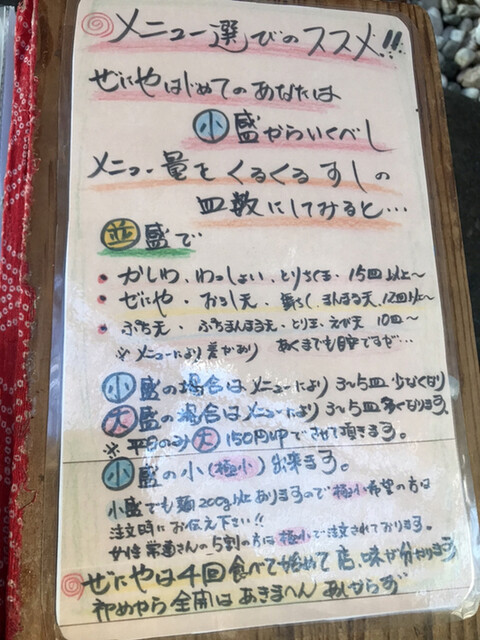 メニュー選びのススメ!!
ぜにやはじめてのあなたは
小盛からいくべし
メニュー量をくるくるすしの
皿数にしてみると…
並盛で
・かしわ、わっしょい、とりちくま・15皿以上〜
・ぜにや・おろし天・まんまる天、12皿以上〜
・ぷち天・ぷちまんまる天・とり玉・えび天 10皿〜
※メニューにより差があり あくまでも目安ですが…
小盛の場合はメニューにより3〜5皿少なくなり
大盛の場合はメニューにより3〜5皿多くなります。
※平日のみ大150円UPでさせて頂きます。
小盛の小(極小)出来ます。
小盛でも麺200g以上ありますので極小希望の方は
注文時にお伝え下さい!!
女性常連さんの5割の方は極小で注文されております。
ぜにやは4回食べて始めて店、味が分かります
初めから全開はあきまへん あしからず